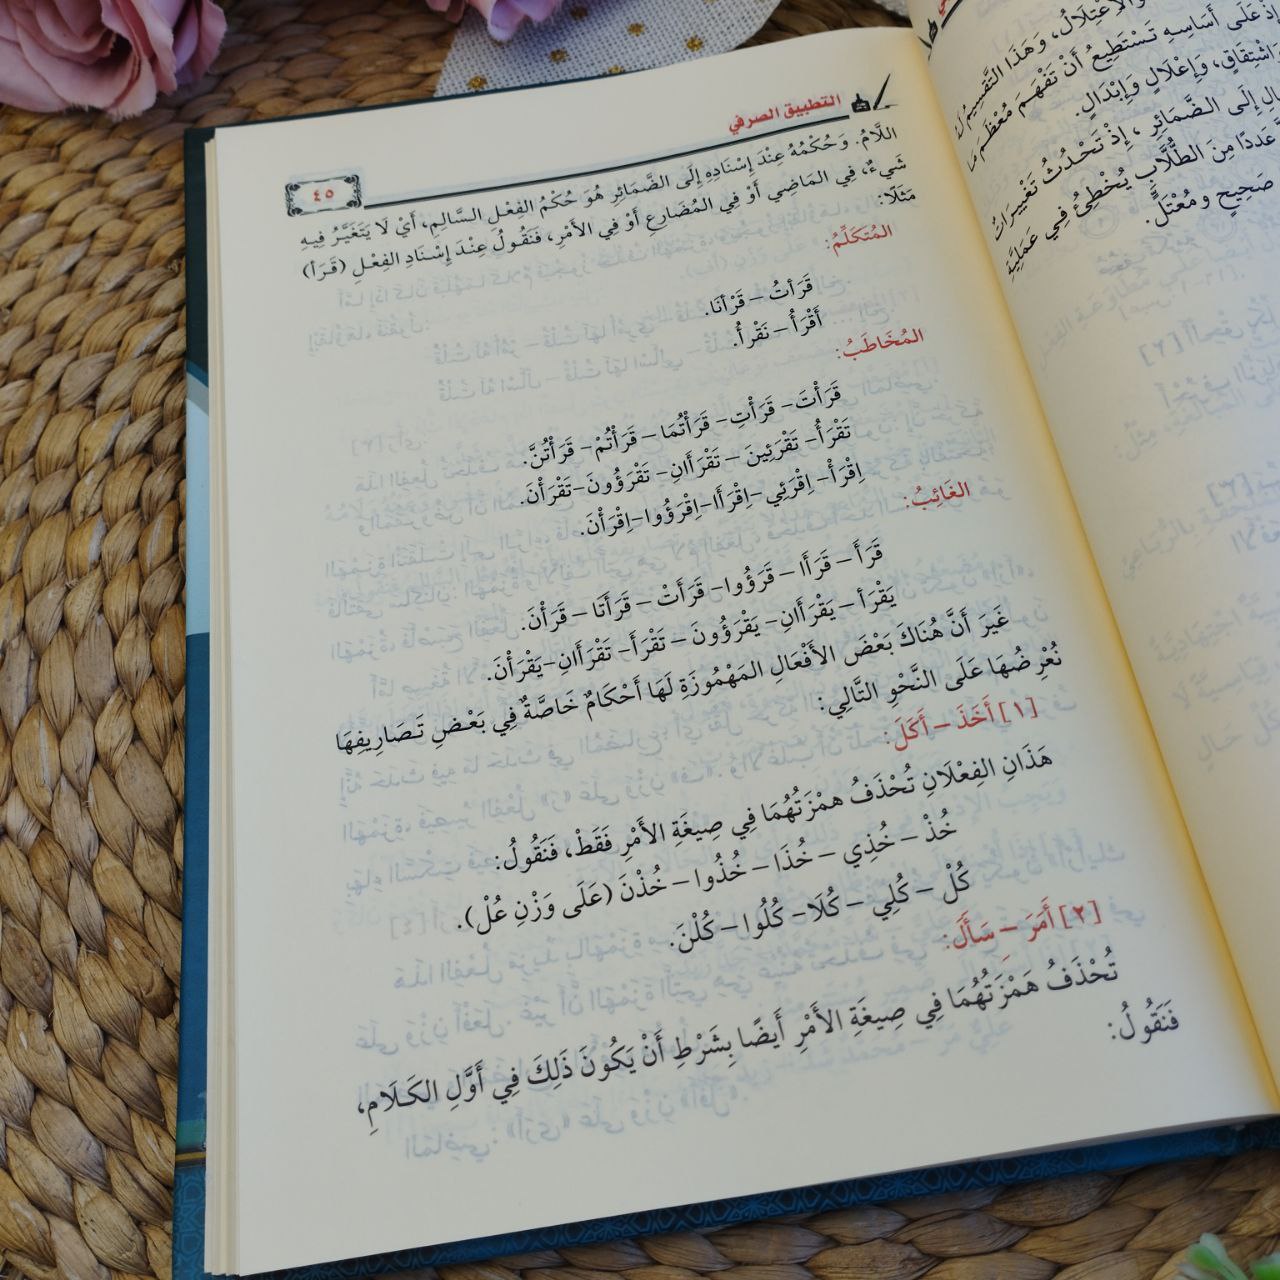 والاعْتِلَالُ، وَهَذَا التَّقْسِيمُ لَهُ
إِذْ عَلَى أَسَاسِهِ تَسْتَطِيعُ أَنْ تَفْهَمَ مُعْظَمَ مَا
وَاشْتِقَاقٍ، وَإِعْلَالٍ وَإِبْدَالٍ.
إِلَى الضَّمَائِرِ، إِذْ تَحْدُثُ تَغْيِيرَاتٌ
عَدَدًا مِنَ الطُّلَّابِ يُخْطِئُ فِي عَمَلِيَّةِ
صَحِيحٍ وَمُعْتَلٍّ.
التطبيق الصرفي
٤٥
اللَّامُ. وَحُكْمُهُ عِنْدَ إِسْنَادِهِ إِلَى الضَّمَائِرِ هُوَ حُكْمُ الفِعْلِ السَّالِمِ، أَيْ لَا يَتَغَيَّرُ فِيهِ
شَيءٌ، فِي المَاضِي أَوْ فِي المُضَارِعِ أَوْ فِي الأَمْرِ، فَنَقُولُ عِنْدَ إِسْنَادِ الفِعْلِ (قَرَأَ)
مَثَلًا:
المُتَكَلِّمُ:
قَرَأتُ – قَرْأنَا.
أَقْرَأُ – نَقْرأُ.
المُخَاطَبُ:
قَرَأْتَ – قَرَأْتِ – قَرَأْتُمَا – قَرَأْتُمْ – قَرَأْتُنَّ.
تَقْرَأُ – تَقْرَئِينَ – تَقْرَأَانِ – تَقْرَؤُونَ – تَقْرَأْنَ.
اِقْرَأْ – اِقْرَئِي – اِقْرَأَا – اِقْرَؤُوا – اِقْرَأْنَ.
الغَائِبُ:
قَرَأَ – قَرَأَا – قَرَؤُوا – قَرَأَتْ – قَرَأَتَا – قَرَأْنَ.
يَقْرَأ – يَقْرَأَانِ – يَقْرَؤُونَ – تَقْرَأَ – تَقْرَأَانِ – يَقْرَأْنَ.
غَيرَ أَنَّ هُنَاكَ بَعْضَ الأَفْعَالِ المَهْمُوزَةِ لَهَا أَحْكَامٌ خَاصَّةٌ فِي بَعْضِ تَصَارِيفِهَا
نُعْرِضُهَا عَلَى النَّحْوِ التَّالِي:
[١] أَخَذَ – أَكَلَ:
هَذَانِ الفِعْلَانِ تُحْذَفُ همْزَتُهُمَا فِي صِيغَةِ الأَمْرِ فَقَطْ، فَنَقُولُ:
خُذْ – خُذِي – خُذَا – خُذُوا – خُذْنَ (عَلَى وَزْنِ عُلْ).
كُلْ – كُلِي – كُلَا – كُلُوا – كُلْنَ.
[٢] أَمَرَ – سَأَلَ:
تُحْذَفُ هَمْزَتُهُمَا فِي صِيغَةِ الأَمْرِ أَيضًا بِشَرْطِ أَنْ يَكُونَ ذَلِكَ فِي أَوَّلِ الكَلَامِ،
فَنَقُولُ: